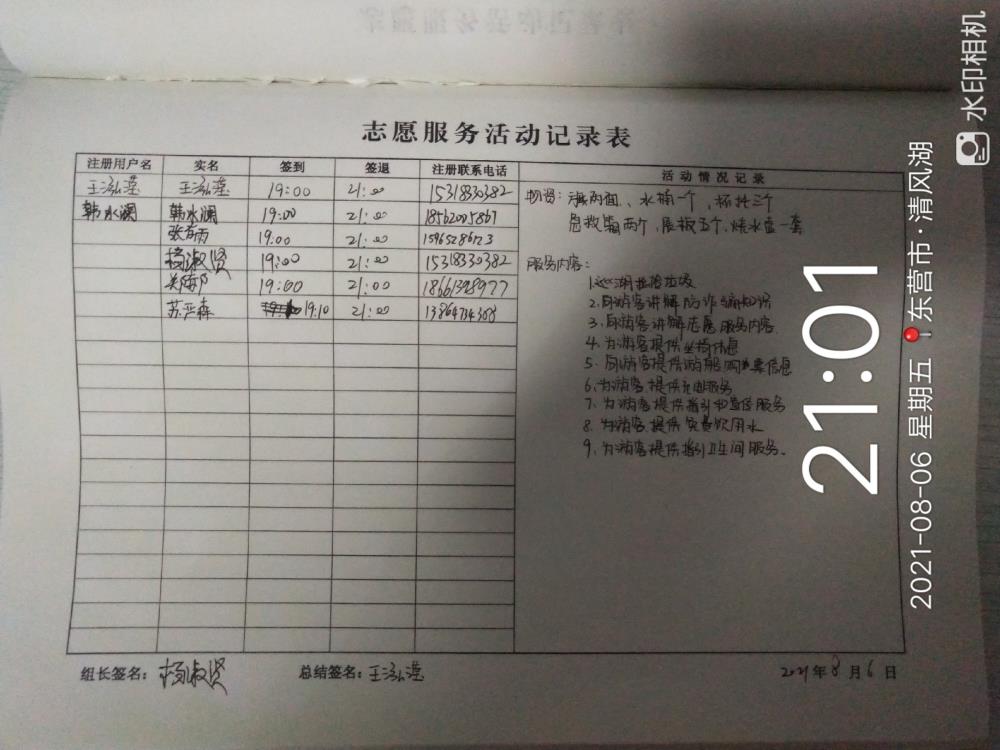 志愿服务活动记录表
注册用户名 实名 签到 签退 注册联系电话 活动情况记录
王泓滢 王泓滢 19:00 21:00 15318330382
韩水澜 韩水澜 19:00 21:00 18562005867
19:00 21:00
杨淑贤 19:00 21:00 15318330382
19:00 21:00 18661398977
苏严森 19:10 21:00 13864734308
物资:旗两面、水桶一个,杯托三个
急救箱两个,展板五个,烧水壶一套
服务内容:
1.巡湖捡垃圾
2.向游客讲解防诈骗知识
3.向游客讲解志愿服务内容
4.为游客提供 信息
5.向游客提供游船购票信息
6.为游客提供 服务
7.为游客提供指引和宣传服务
8.为游客提供免费饮用水
9.为游客提供指引卫生间服务。
组长签名:杨淑贤 总结签名:王泓滢 2021年8月6日
21:01
2021-08-06 星期五 东营市·清风湖
水印相机